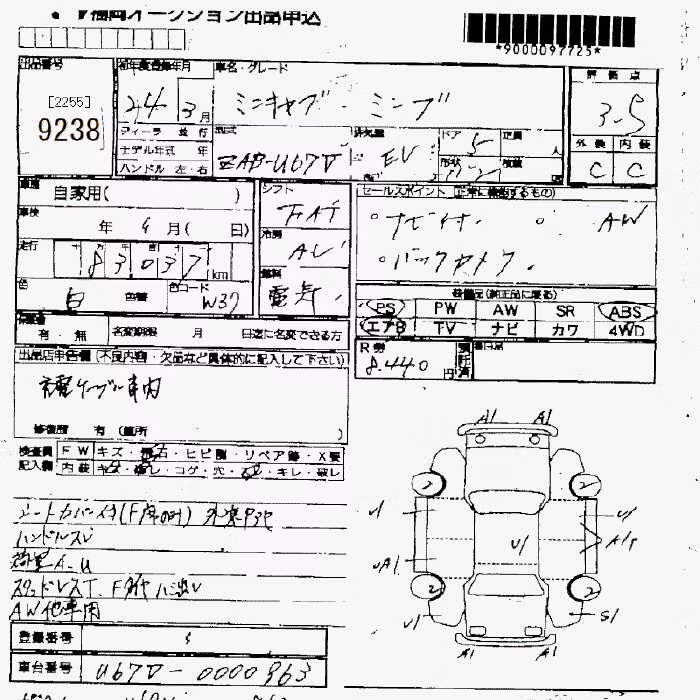 福岡オークション出品申込
*9000097725*
出品番号
[2255]
9238
初年度登録年月
24年3月
車名・グレード
ミニキャブ ミーブ
評価点
3.5
外装 内装
C C
ディーラ 並行
モデル年式 年
ハンドル 左・右
型式
ZAB-U67V
排気量
EV
ドア
5
形状
バン
定員
人
積載
車歴
自家用( )
車検
年 月( 日)
走行
83,037 km
色
白
色替
色コード
W37
シフト
FAT
冷房
AC
燃料
電気
セールスポイント(正常に機能するもの)
・ナビ付 ・AW
・バックカメラ
装備品(純正品に限る)
PS PW AW SR ABS
エアB TV ナビ カワ 4WD
有・無
名変期限 月 日迄に名変できる方
R券
8,440円
預託済
出品店申告欄(不良内容・欠品など具体的に記入して下さい)
充電ケーブル車内
修復歴 有(箇所 )
検査員記入欄
FW キズ・飛石・ヒビ割・リペア跡・X要
内装 キズ・汚レ・コゲ・穴・キレ・破レ
シートカバー付(F席のみ)
ハンドルスレ
荷室A.U
スタッドレスT.
AW他車用
A1 A1
2 2
U1
A1
U1
2 2
U1 S1
A1 A1
登録番号
車台番号
U67V-0000963